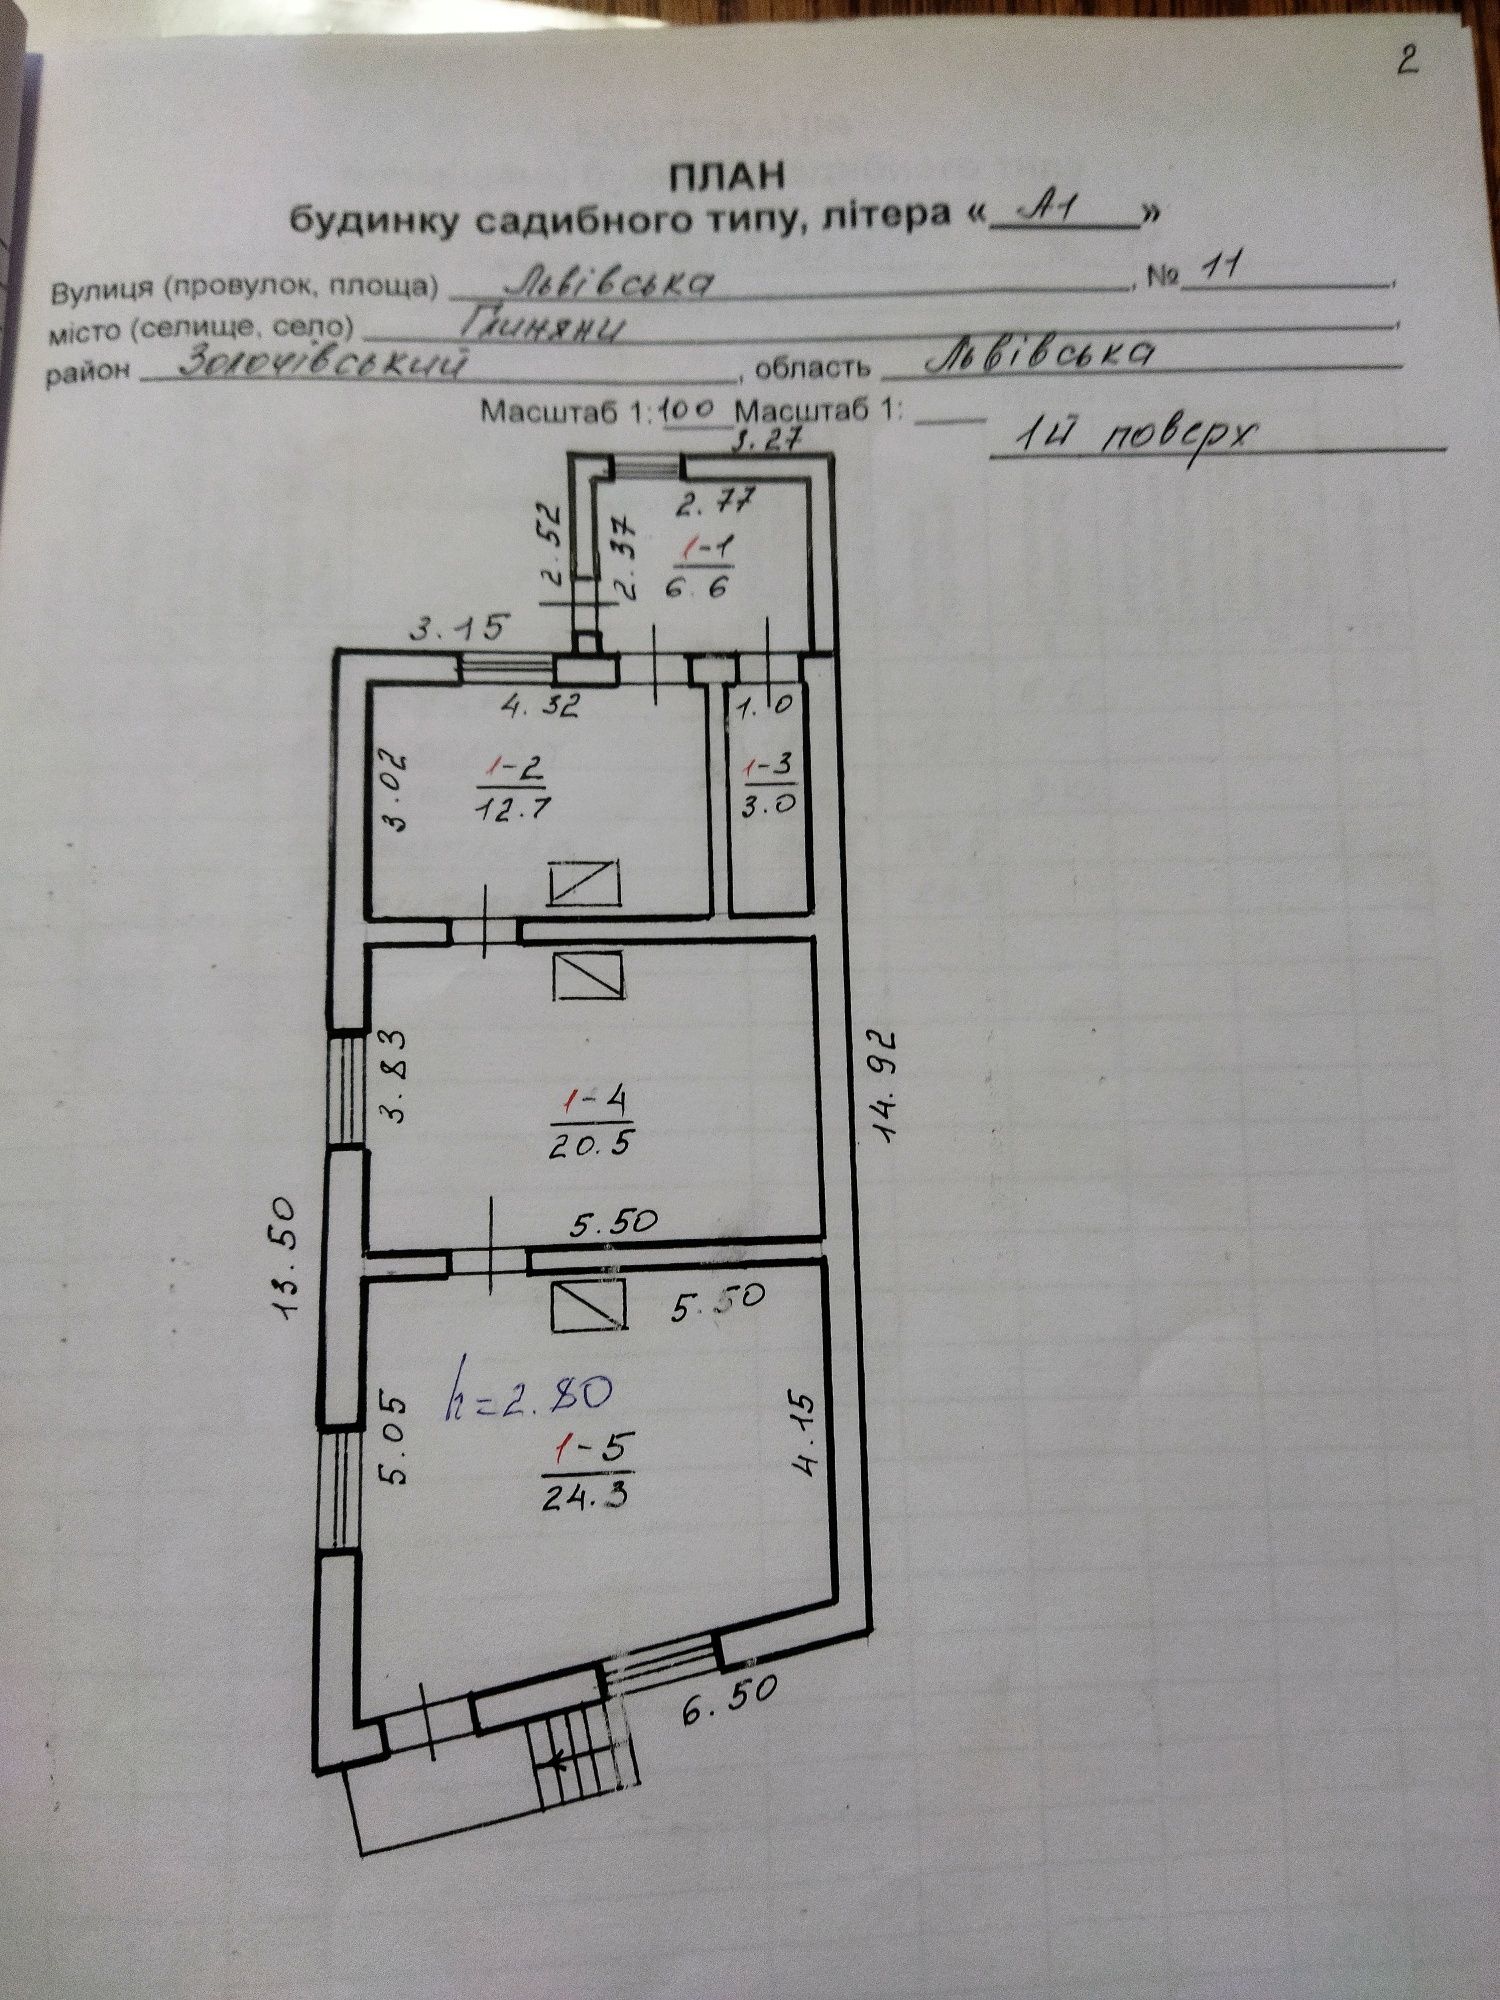 2
ПЛАН
будинку садибного типу, літера « А1 »
Вулиця (провулок, площа) Львівська, № 11,
місто (селище, село) Глиняни,
район Золочівський, область Львівська
Масштаб 1:100 Масштаб 1:
1й поверх
3.27
2.77
2.52
2.37
1-1
6.6
3.15
4.32
1.0
3.02
1-2
12.7
1-3
3.0
3.83
14.92
1-4
20.5
13.50
5.50
5.50
h=2.80
5.05
4.15
1-5
24.3
6.50